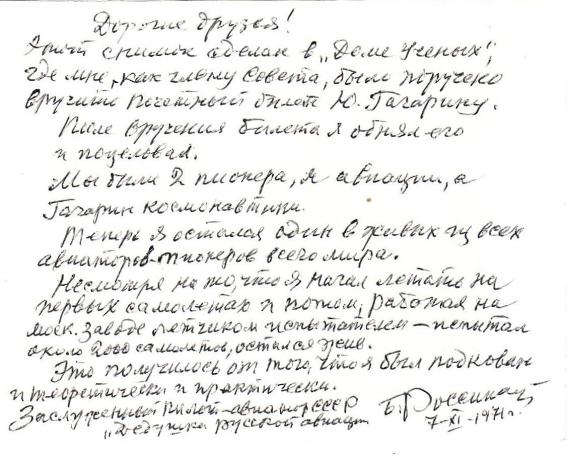 Дорогие друзья!
Этот снимок сделан в „Доме Ученых",
где мне, как члену Совета, было поручено
вручить почетный билет Ю. Гагарину.
После вручения билета я обнял его
и поцеловал.
Мы были 2 пионера, я авиации, а
Гагарин космонавтики.
Теперь я остался один в живых из всех
авиаторов-пионеров всего мира.
Несмотря на то, что я начал летать на
первых самолетах и потом, работая на
моск. заводе летчиком испытателем – испытал
около 2000 самолетов, остался жив.
Это получилось от того, что я был подкован
и теоретически и практически.
Заслуженный пилот-авиатор СССР
„Дедушка русской авиации
Б. Россинский
7-XI-1971г.